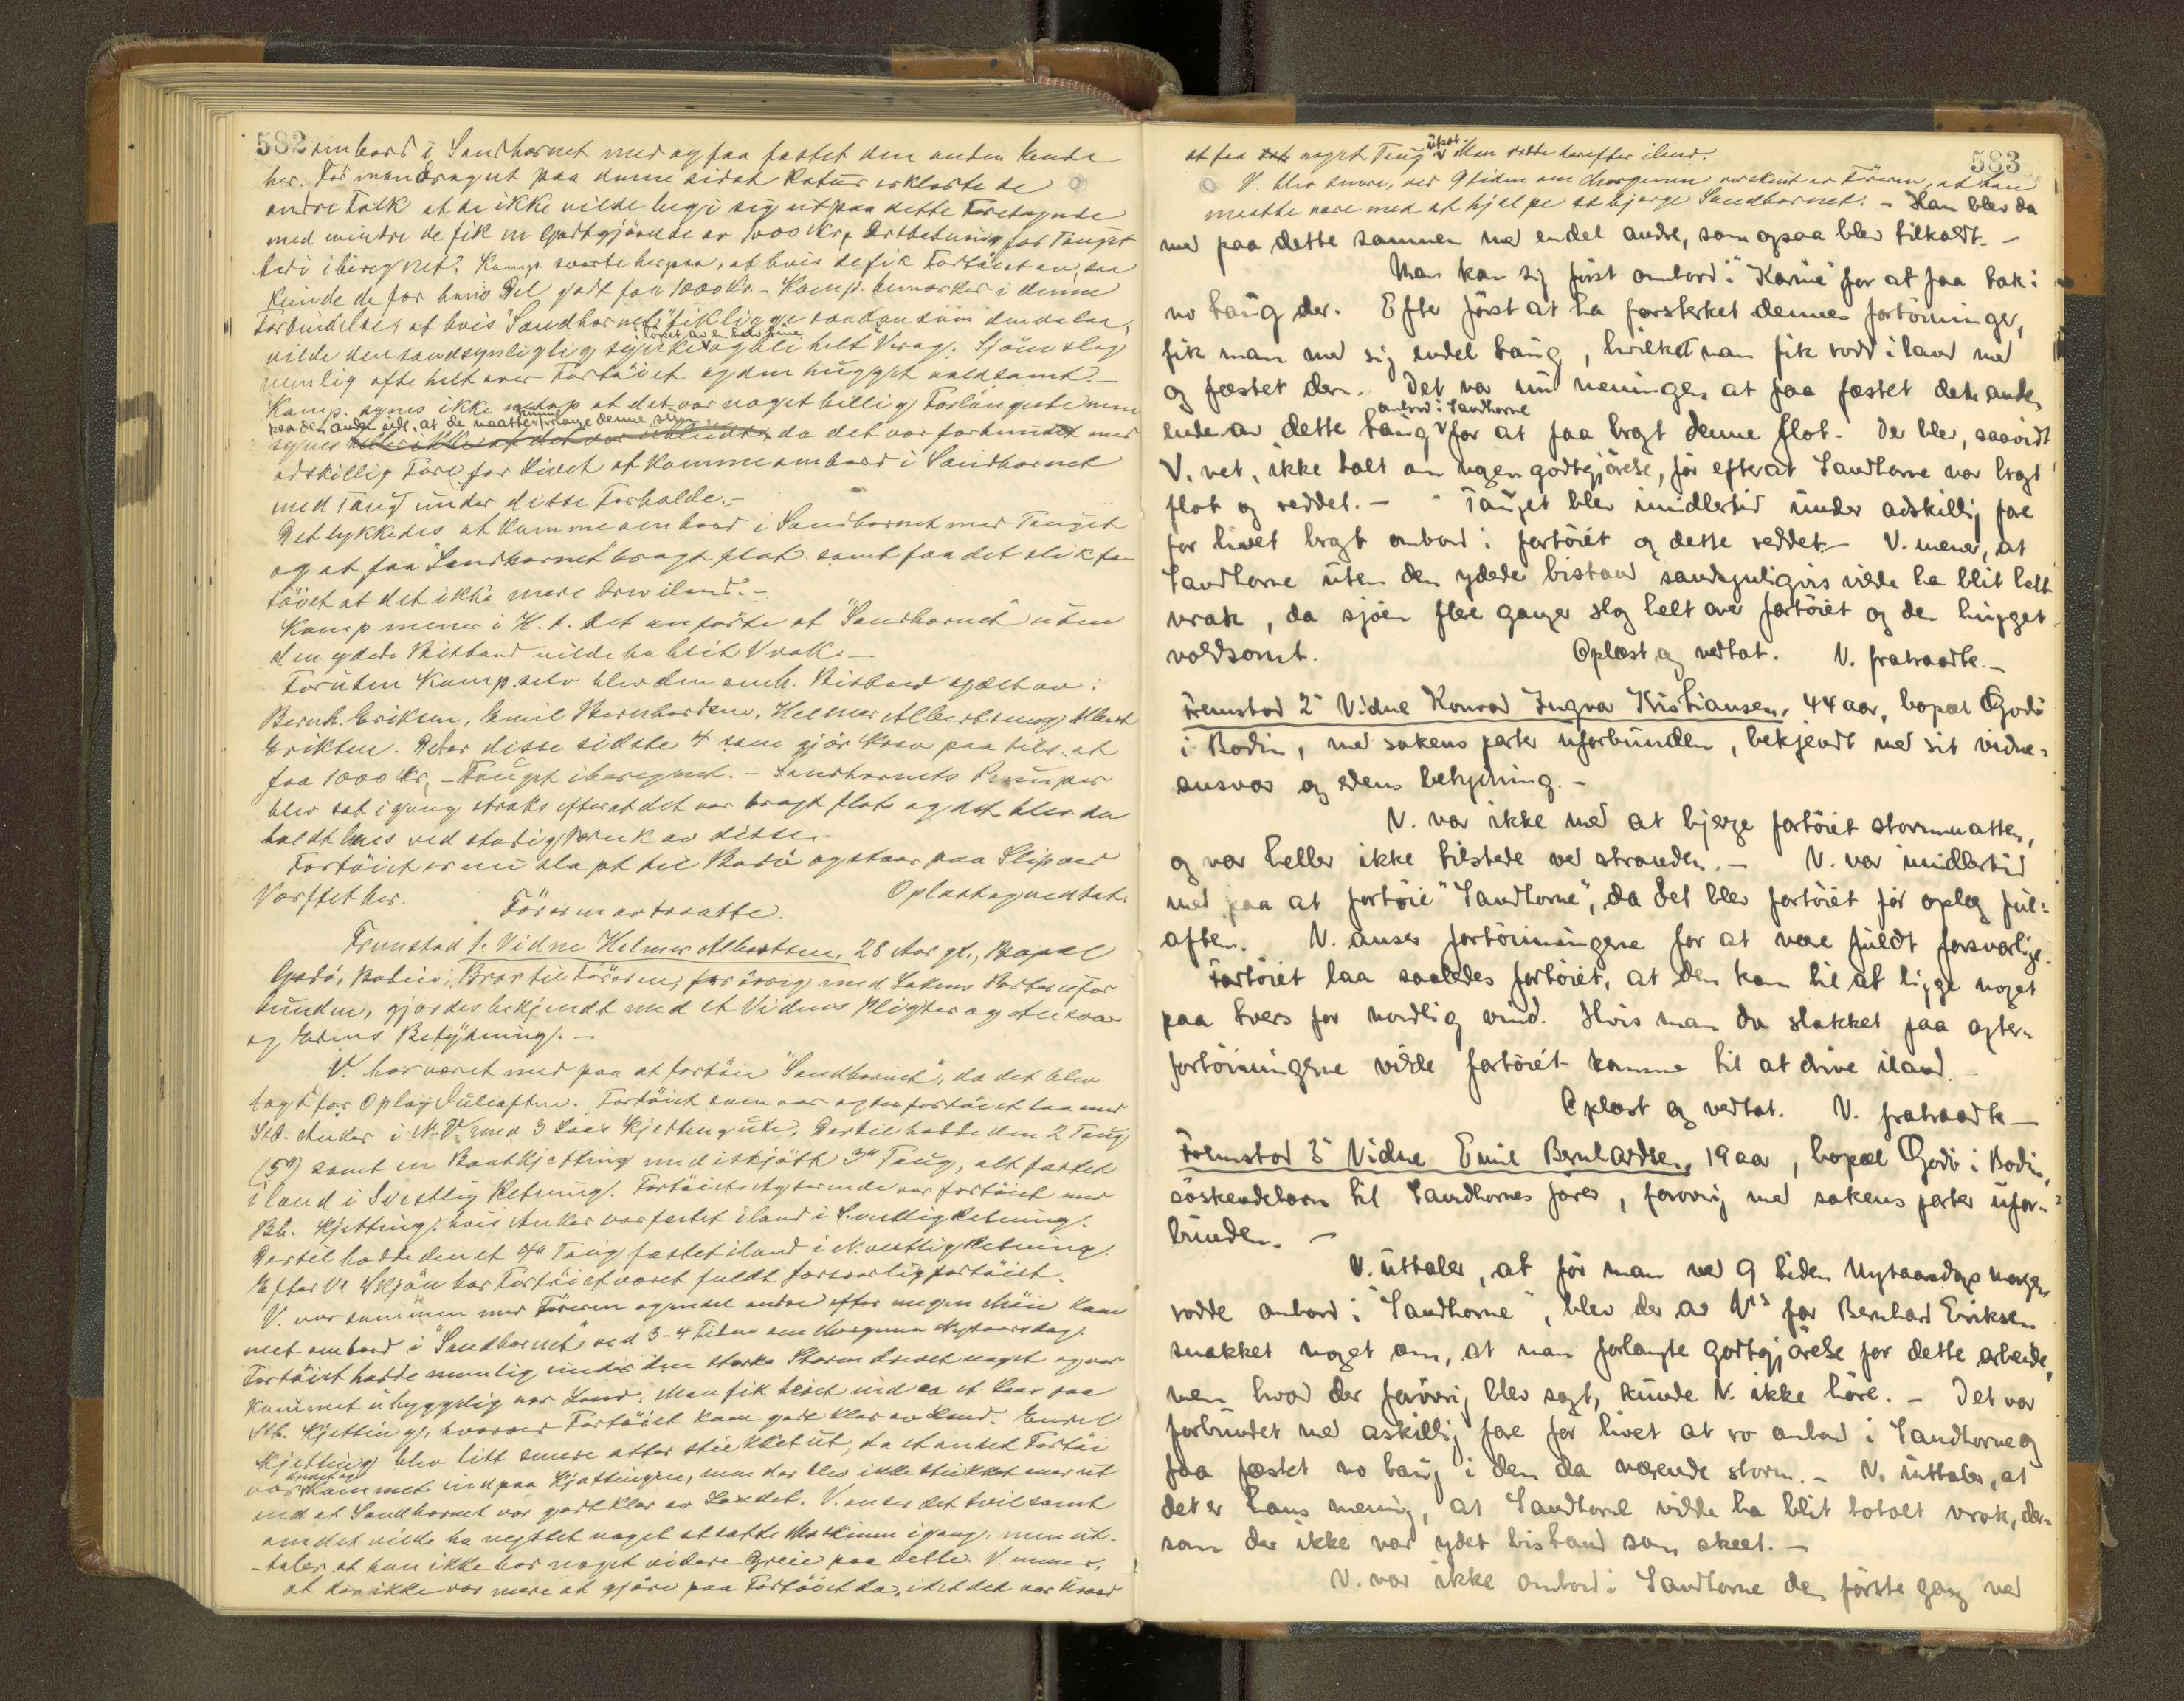 582
ombord i Sandhornet med og faa fæstet den anden Ende
her. Før man drog ut paa denne sidst Retur erklærte de
andre Folk at de ikke vilde begi sig ut paa dette Foretagende
med mindre de fik en Godtgjørelse av 1000 Kr, Erstatning for Tauget
heri iberegnet. Komp. svarte herpaa, at hvis de fik Fartøiet av, saa
kunde de for hans Del godt faa 1000 Kr. - Komp. bemærker i denne
Forbindelse, at hvis "Sandhornet" fik ligge saadan som den da laa,
i løpet av en halv time
vilde den sandsynligvis synke og bli helt Vrag. Sjøen slog
nemlig ofte helt over Fartøiet og den hugget voldsomt. -
Komp. synes ikke netop at det var noget billig Forlangende men
paa den anden side, at de maatte kunne forlange denne sum
synes heller ikke at det var ublidt, da det var forbundet med
adskillig Fare for Livet at komme ombord i Sandhornet
med Taug under disse Forholde. -
Det lykkedes at komme ombord i Sandhornet med Tauget
og at faa "Sandhornet" bragt flot samt faa det slik for
tøiet at det ikke mere drev iland. -
Komp mener i H. t. det anførte at "Sandhornet" uten
den ydede Bistand vilde ha blit Vrak. -
Foruten Komp. selv blev den omh. Bistand ydet av:
Bernh. Eriksen, Emil Bernhardsen, Helmer Albertsen og Albert
Eriksen. Det er disse sidste 4 som gjør Krav paa tils. at
faa 1000 Kr, - Tauget iberegnet. - Sandhornets Pumper
blev sat i gang straks efter at det var bragt flot og det blev da
holdt læns ved stadig Bruk av disse.
Fartøiet er nu slæpt til Bodø og staar paa Slip ved
Værftet her. Oplæst og vedtat.
Føreren avtraatte.
Fremstod 1. Vidne Helmer Albertsen, 28 Aar gl., Bopæl
Godø, Bodin, Bror til Føreren, forøvrig med Sakens Parter ufor
bunden, gjordes bekjendt med et Vidnes Pligter og Ansvar
og Edens Betydning. -
V. har været med paa at fortøie "Sandhornet", da det blev
lagt for Oplag Juleaften. Fartøiet som var agterfortøiet laa med
Stb. Anker i N.V. med 3 Laas Kjetting ute. Dertil hadde den 2 Taug
(5") samt en Baatkjetting med iskjøtt 3" Taug, alt fæstet
iland i Svestlig Retning. Fartøiets Agterende var fortøiet med
Bb. Kjetting, hvis Anker var fæstet iland i S.vestlig Retning.
Dertil hadde den et 4" Taug fæstet iland i N.vestlig Retning.
Efter V's Skjøn har Fartøiet været fuldt forsvarlig fortøiet.
V. var sammen med Føreren og endel andre efter megen Møie kom
met ombord i "Sandhornet" ved 3-4 Tiden om Morgenen Nytaarsdag.
Fartøiet hadde nemlig under den sterke Storm drevet noget og var
kommet uhyggelig nær Land. Man fik hivet ind ca et Laas paa
Stb. Kjetting, hvorved Fartøiet kom godt klar av Land. Endel
Kjetting blev litt senere atter stukket ut, da et andet Fartøi
drevet og
var kommet ind paa Kjettingen, men der blev ikke stukket mer ut
end at Sandhornet var godt klar av Landet. V. anser det tvilsomt
om det vilde ha nyttet noget at sætte Maskinen igang, men ut-
-taler, at han ikke har noget videre Greie paa dette. V. mener,
at der ikke var mere at gjøre paa Fartøiet da, idet det var Uraad
583
utsat.
at faa noget Taug Man rodde derefter iland.
V. blev senere, ved 9 tiden om Morgenen anskreket av Føreren, at han
maatte være med at hjælpe at bjerge Sandhornet. - Han blev da
med paa dette sammen med endel andre, som ogsaa blev tilkaldt. -
Man kom sig først ombord i "Karine" for at faa tak i
no taug der. Efter først at ha forsterket dennes fortøininger,
fik man med sig endel taug, hvilket man fik rodd iland med
og fæstet der. Det var nu meningen at faa fæstet den anden
ombord i Sandhorne
ende av dette taug for at faa bragt denne flot. Der blev, saavidt
V. vet, ikke talt om nogen godtgjørelse, før efterat Sandhorne var bragt
flot og reddet. - Tauget blev imidlertid under adskillig fare
for livet bragt ombord i fartøiet og dette reddet. - V. mener, at
Sandhorne uten den ydede bistand sandsynligvis vilde ha blit helt
vrak, da sjøen flere ganger slog helt over fartøiet og den hugget
voldsomt. Oplæst og vedtat. V. fratraadte. -
Fremstod 2' Vidne Konrad Ingvar Kristiansen, 44 aar, bopæl Godø
i Bodin, med sakens parter uforbunden, bekjendt med sit vidne=
ansvar og edens betydning. -
V. var ikke med at bjerge fartøiet stormnatten,
og var heller ikke tilstede ved stranden. - V. var imidlertid
med paa at fortøie "Sandhorne", da det blev fortøiet før oplag jul=
aften. V. anser fortøiningene for at være fuldt forsvarlige.
Fartøiet laa saaledes fortøiet, at den kom til at ligge noget
paa tvers for nordlig vind. Hvis man da slakket paa agter-
fortøiningene vilde fartøiet komme til at drive iland.
Oplæst og vedtat. V. fratraadte -
Fremstod 3' Vidne Emil Bernhardsen, 19 aar, bopæl Godø i Bodin,
søskendebarn til Sandhornes fører, forøvrig med sakens parter ufor-
bunden. -
V. uttaler, at før man ved 9 tiden Nytaarsdags morgen
rodde ombord i "Sandhorne", blev der av V's far Bernhard Eriksen
snakket noget om, at man forlangte godtgjørelse for dette arbeide,
men hvad der forøvrig blev sagt, kunde V. ikke høre. - Det var
forbundet med askillig fare for livet at ro ombord i Sandhorne og
faa fæstet no taug i den da værende storm. - V. uttaler, at
det er hans mening, at Sandhorne vilde ha blit totalt vrak, der-
som der ikke var ydet bistand som skeet. -
V. var ikke ombord i Sandhorne den første gang ved